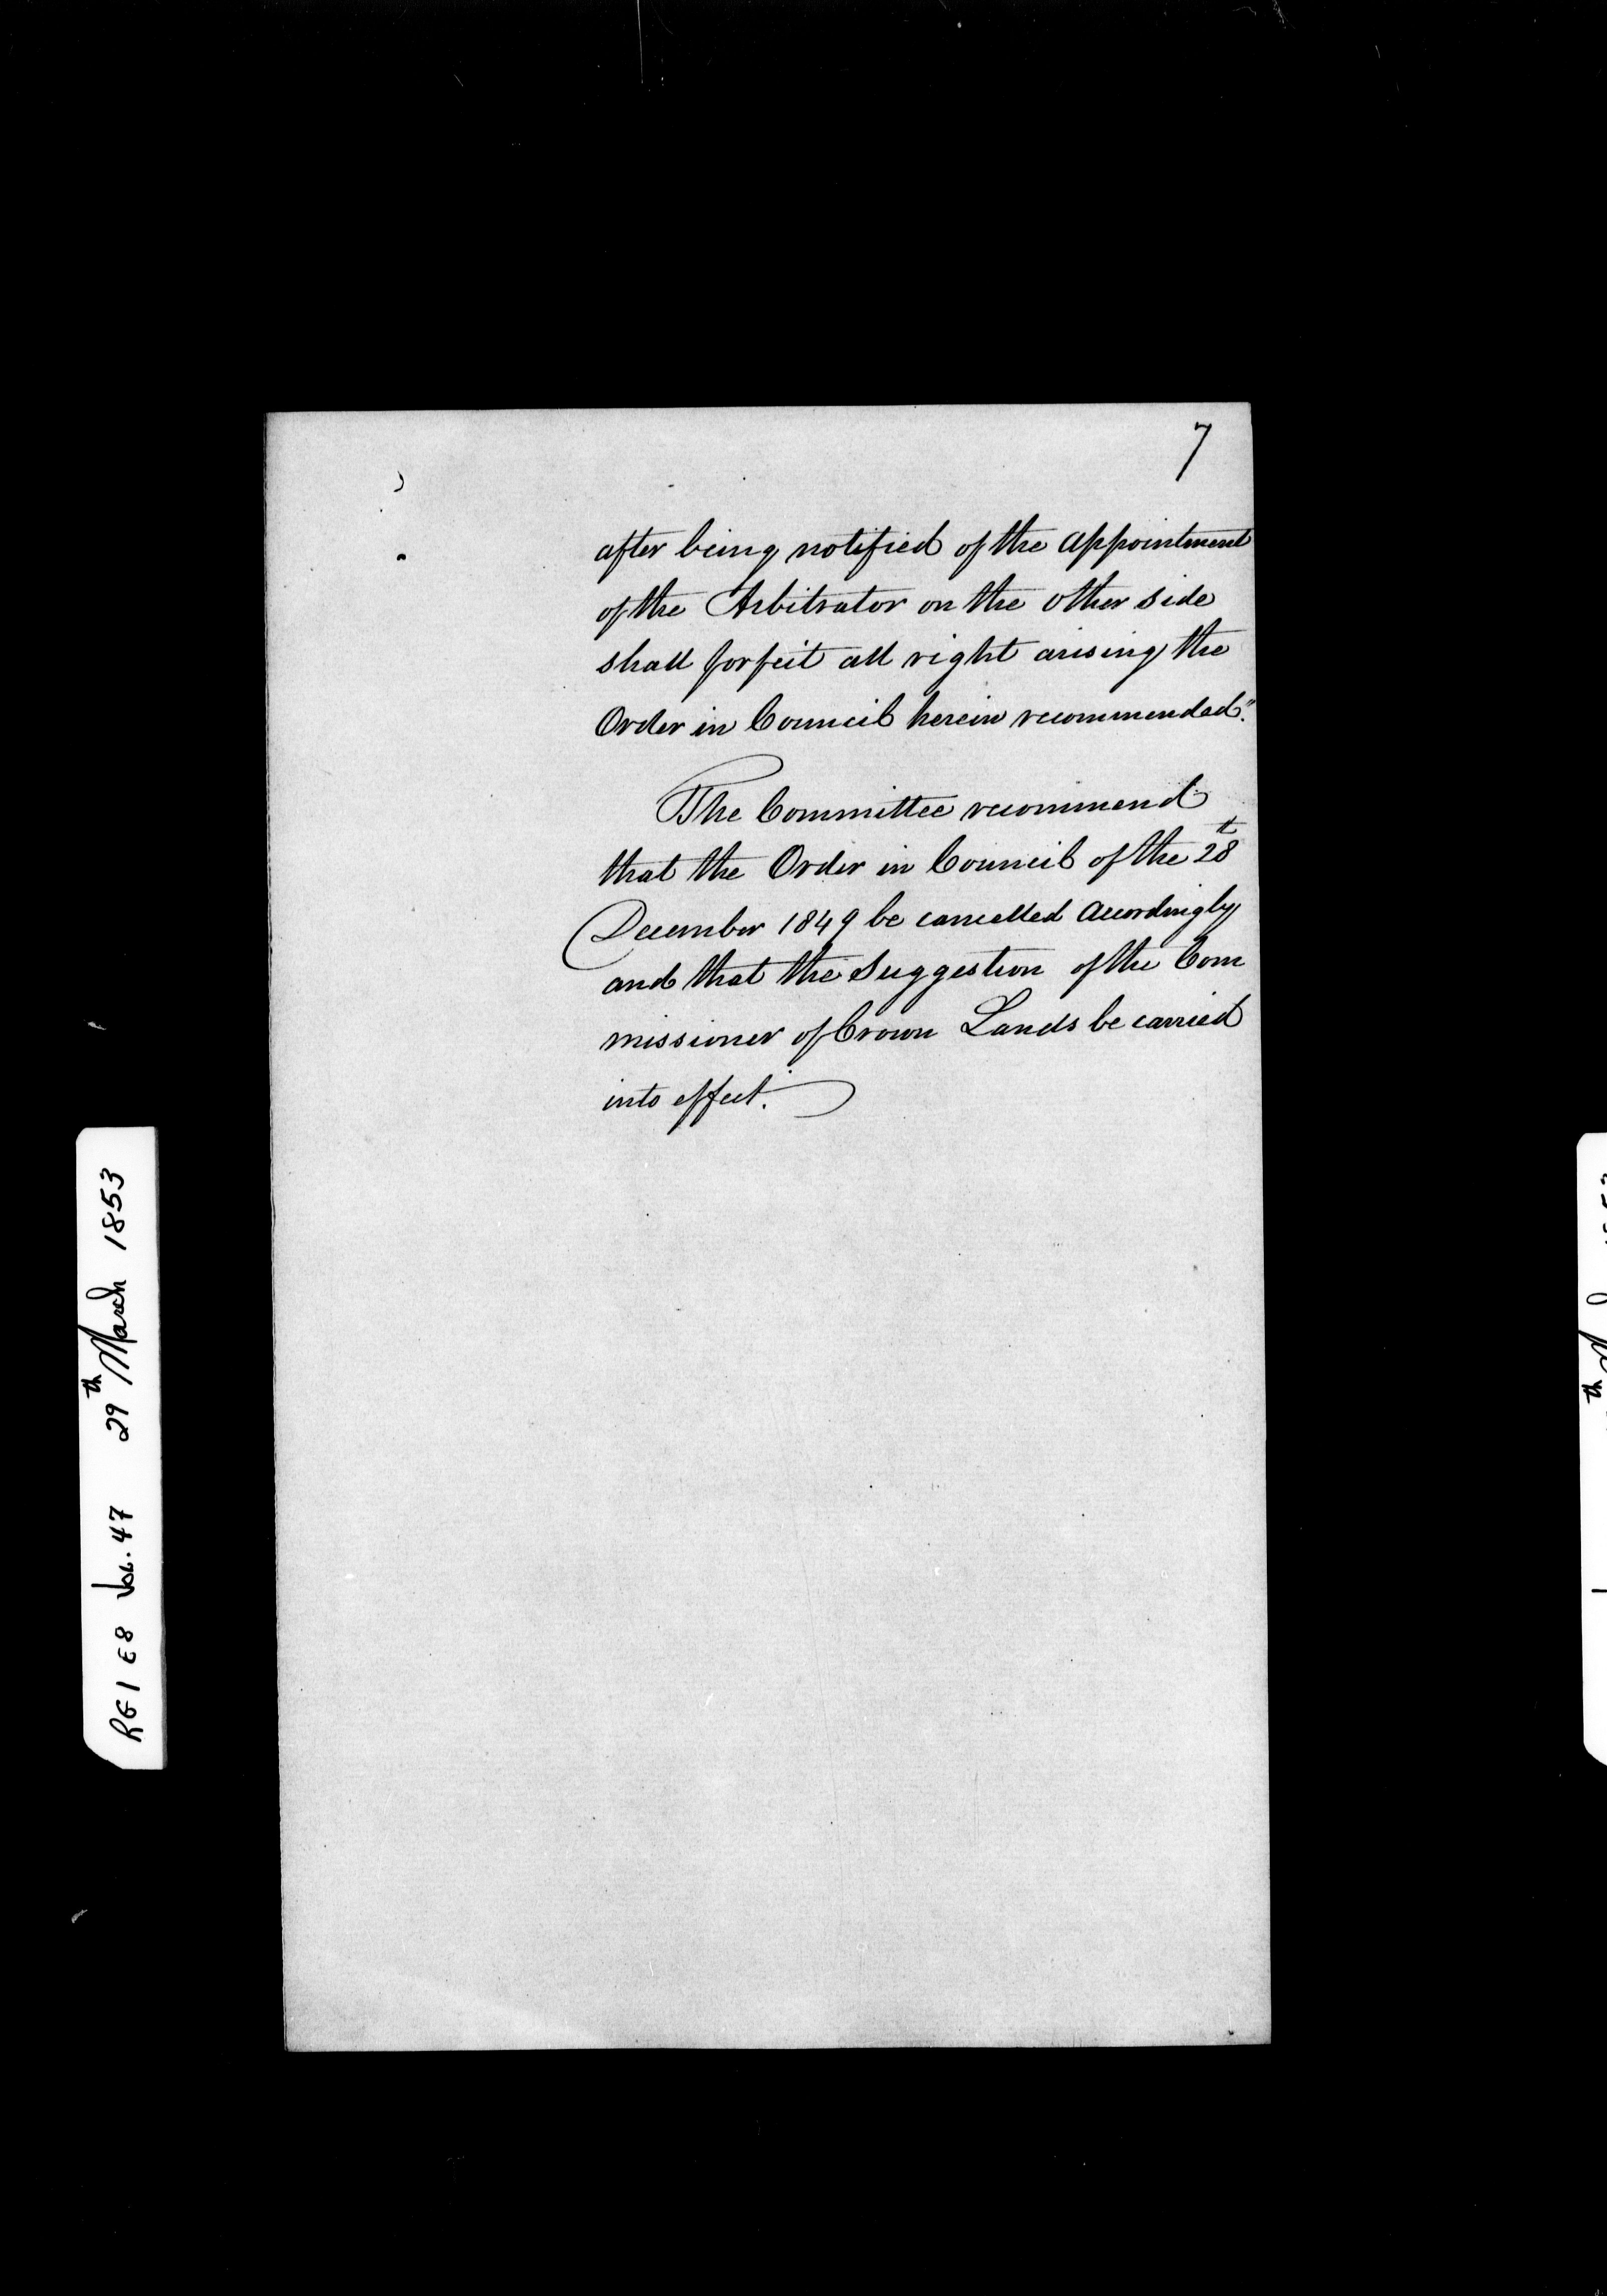 7
after being notified of the appointment
of the Arbitrator on the other side
shall forfeit all right arising the
Order in Council herein recommended."
The Committee recommend
that the Order in Council of the 28t
December 1849 be cancelled accordingly
and that the Suggestion of the Com
missioner of Crown Lands be carried
into effect.
RG1 E8 Vol. 47 29th March 1853
th